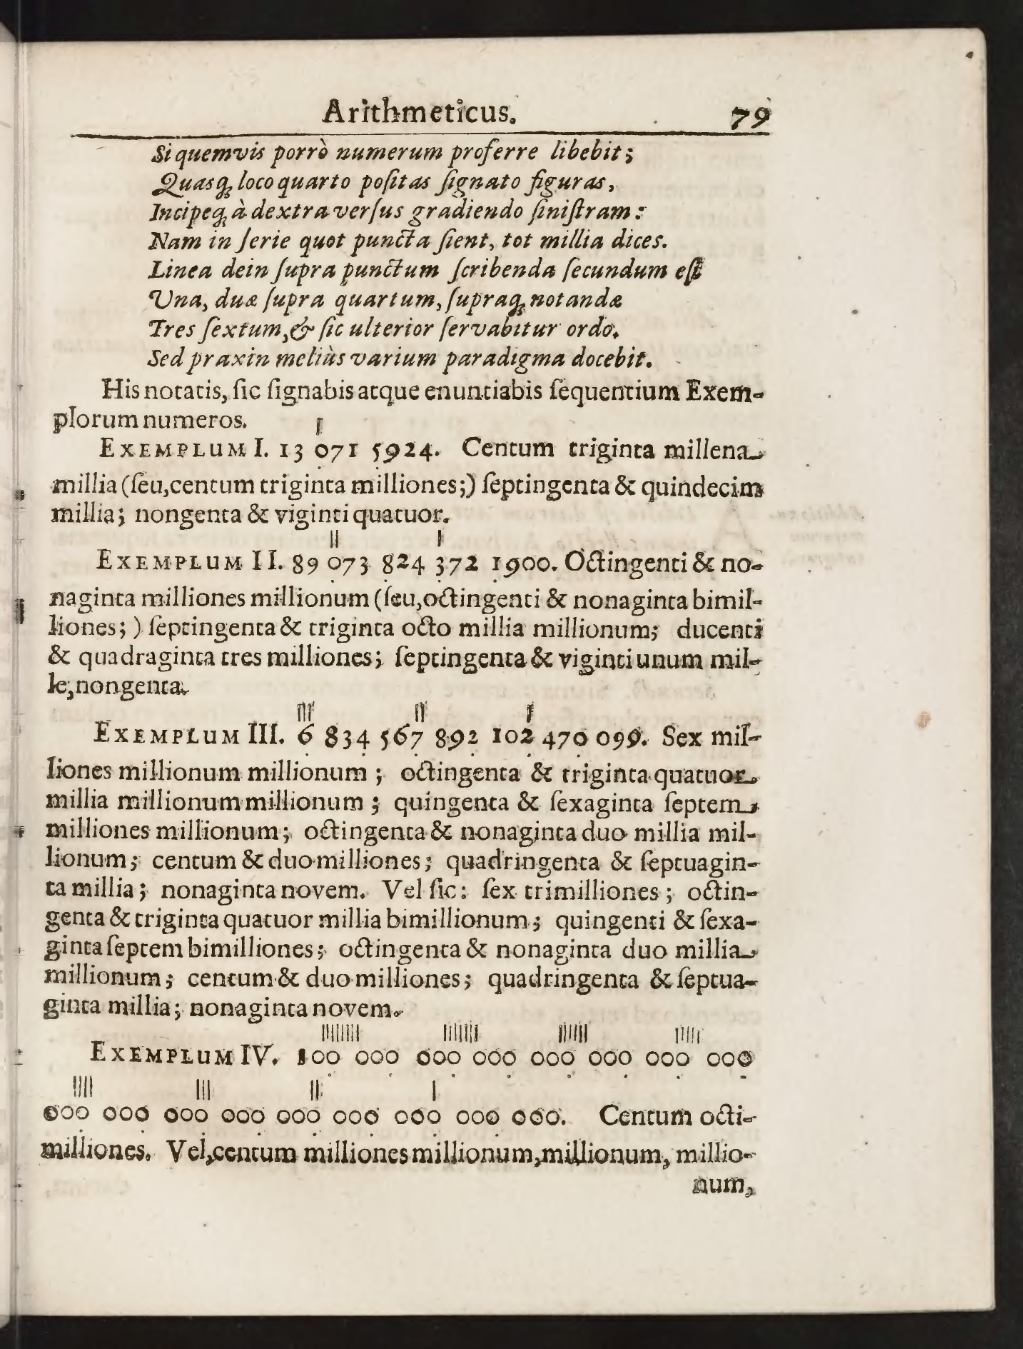 Arithmeticus. 79
Si quemvis porrò numerum proferre libebit;
Quasq; loco quarto poſitas ſignato figuras,
Incipeq; à dextra verſus gradiendo ſiniſtram:
Nam in ſerie quot puncta fient, tot millia dices.
Linea dein ſupra punctum ſcribenda ſecundum eſt
Una, duæ ſupra quartum, ſupraq; notandæ
Tres ſextum, & ſic ulterior ſervabitur ordo.
Sed praxin meliùs varium paradigma docebit.
His notatis, ſic ſignabis atque enuntiabis ſequentium Exem-
plorum numeros.
I
EXEMPLUM I. 13 071 5924. Centum triginta millena
millia (ſeu, centum triginta milliones;) ſeptingenta & quindecim
millia; nongenta & viginti quatuor.
II I
EXEMPLUM II. 89 073 824 372 1900. Octingenti & no-
naginta milliones millionum (ſeu, octingenti & nonaginta bimil-
liones;) ſeptingenta & triginta octo millia millionum; ducenti
& quadraginta tres milliones; ſeptingenta & viginti unum mil-
le, nongenta.
III II I
EXEMPLUM III. 6 834 567 892 102 470 099. Sex mil-
liones millionum millionum; octingenta & triginta quatuor
millia millionum millionum; quingenta & ſexaginta ſeptem
milliones millionum; octingenta & nonaginta duo millia mil-
lionum; centum & duo milliones; quadringenta & ſeptuagin-
ta millia; nonaginta novem. Vel ſic: ſex trimilliones; octin-
genta & triginta quatuor millia bimillionum; quingenti & ſexa-
ginta ſeptem bimilliones; octingenta & nonaginta duo millia
millionum; centum & duo milliones; quadringenta & ſeptua-
ginta millia; nonaginta novem.
IIIIIIII IIIIIII IIIIII IIIII
EXEMPLUM IV. 100 000 000 000 000 000 000 000
IIII III II I
000 000 000 000 000 000 000 000 000. Centum octi-
milliones. Vel, centum milliones millionum, millionum, millio-
num,